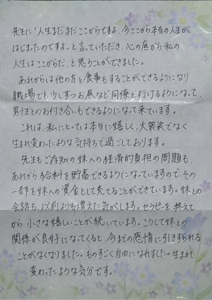 先生に「人生まだまだここからですよ、今ここから本当の人生が
はじまったのですよ」と言っていただき、心の底から私の
人生はここからだ、と思うことができました。
あれからは他の方と食事もすることができるようになり
職場で、少しずつお昼など同僚と行けるようになって、
男性とのお付き合いもできるようになって来ています。
これは、私にとっては本当に嬉しく、大袈裟でなく
生まれ変わったような気持ちで過ごしております。
先生もご存知の妹への経済的負担の問題も、
あれから給料を貯蓄できるようになっていますので、その
一部を妹への資金として充てることができています。妹との
会話も、以前よりも増えた気がします。セラピーを終えて
から、小さな嬉しいことが続いています。こうして妹との
関係が良好になってくると、今までの感情に引きずられる
ことがなくなりました。ものすごく自由になれましたし、生まれ
変わったような気分です。